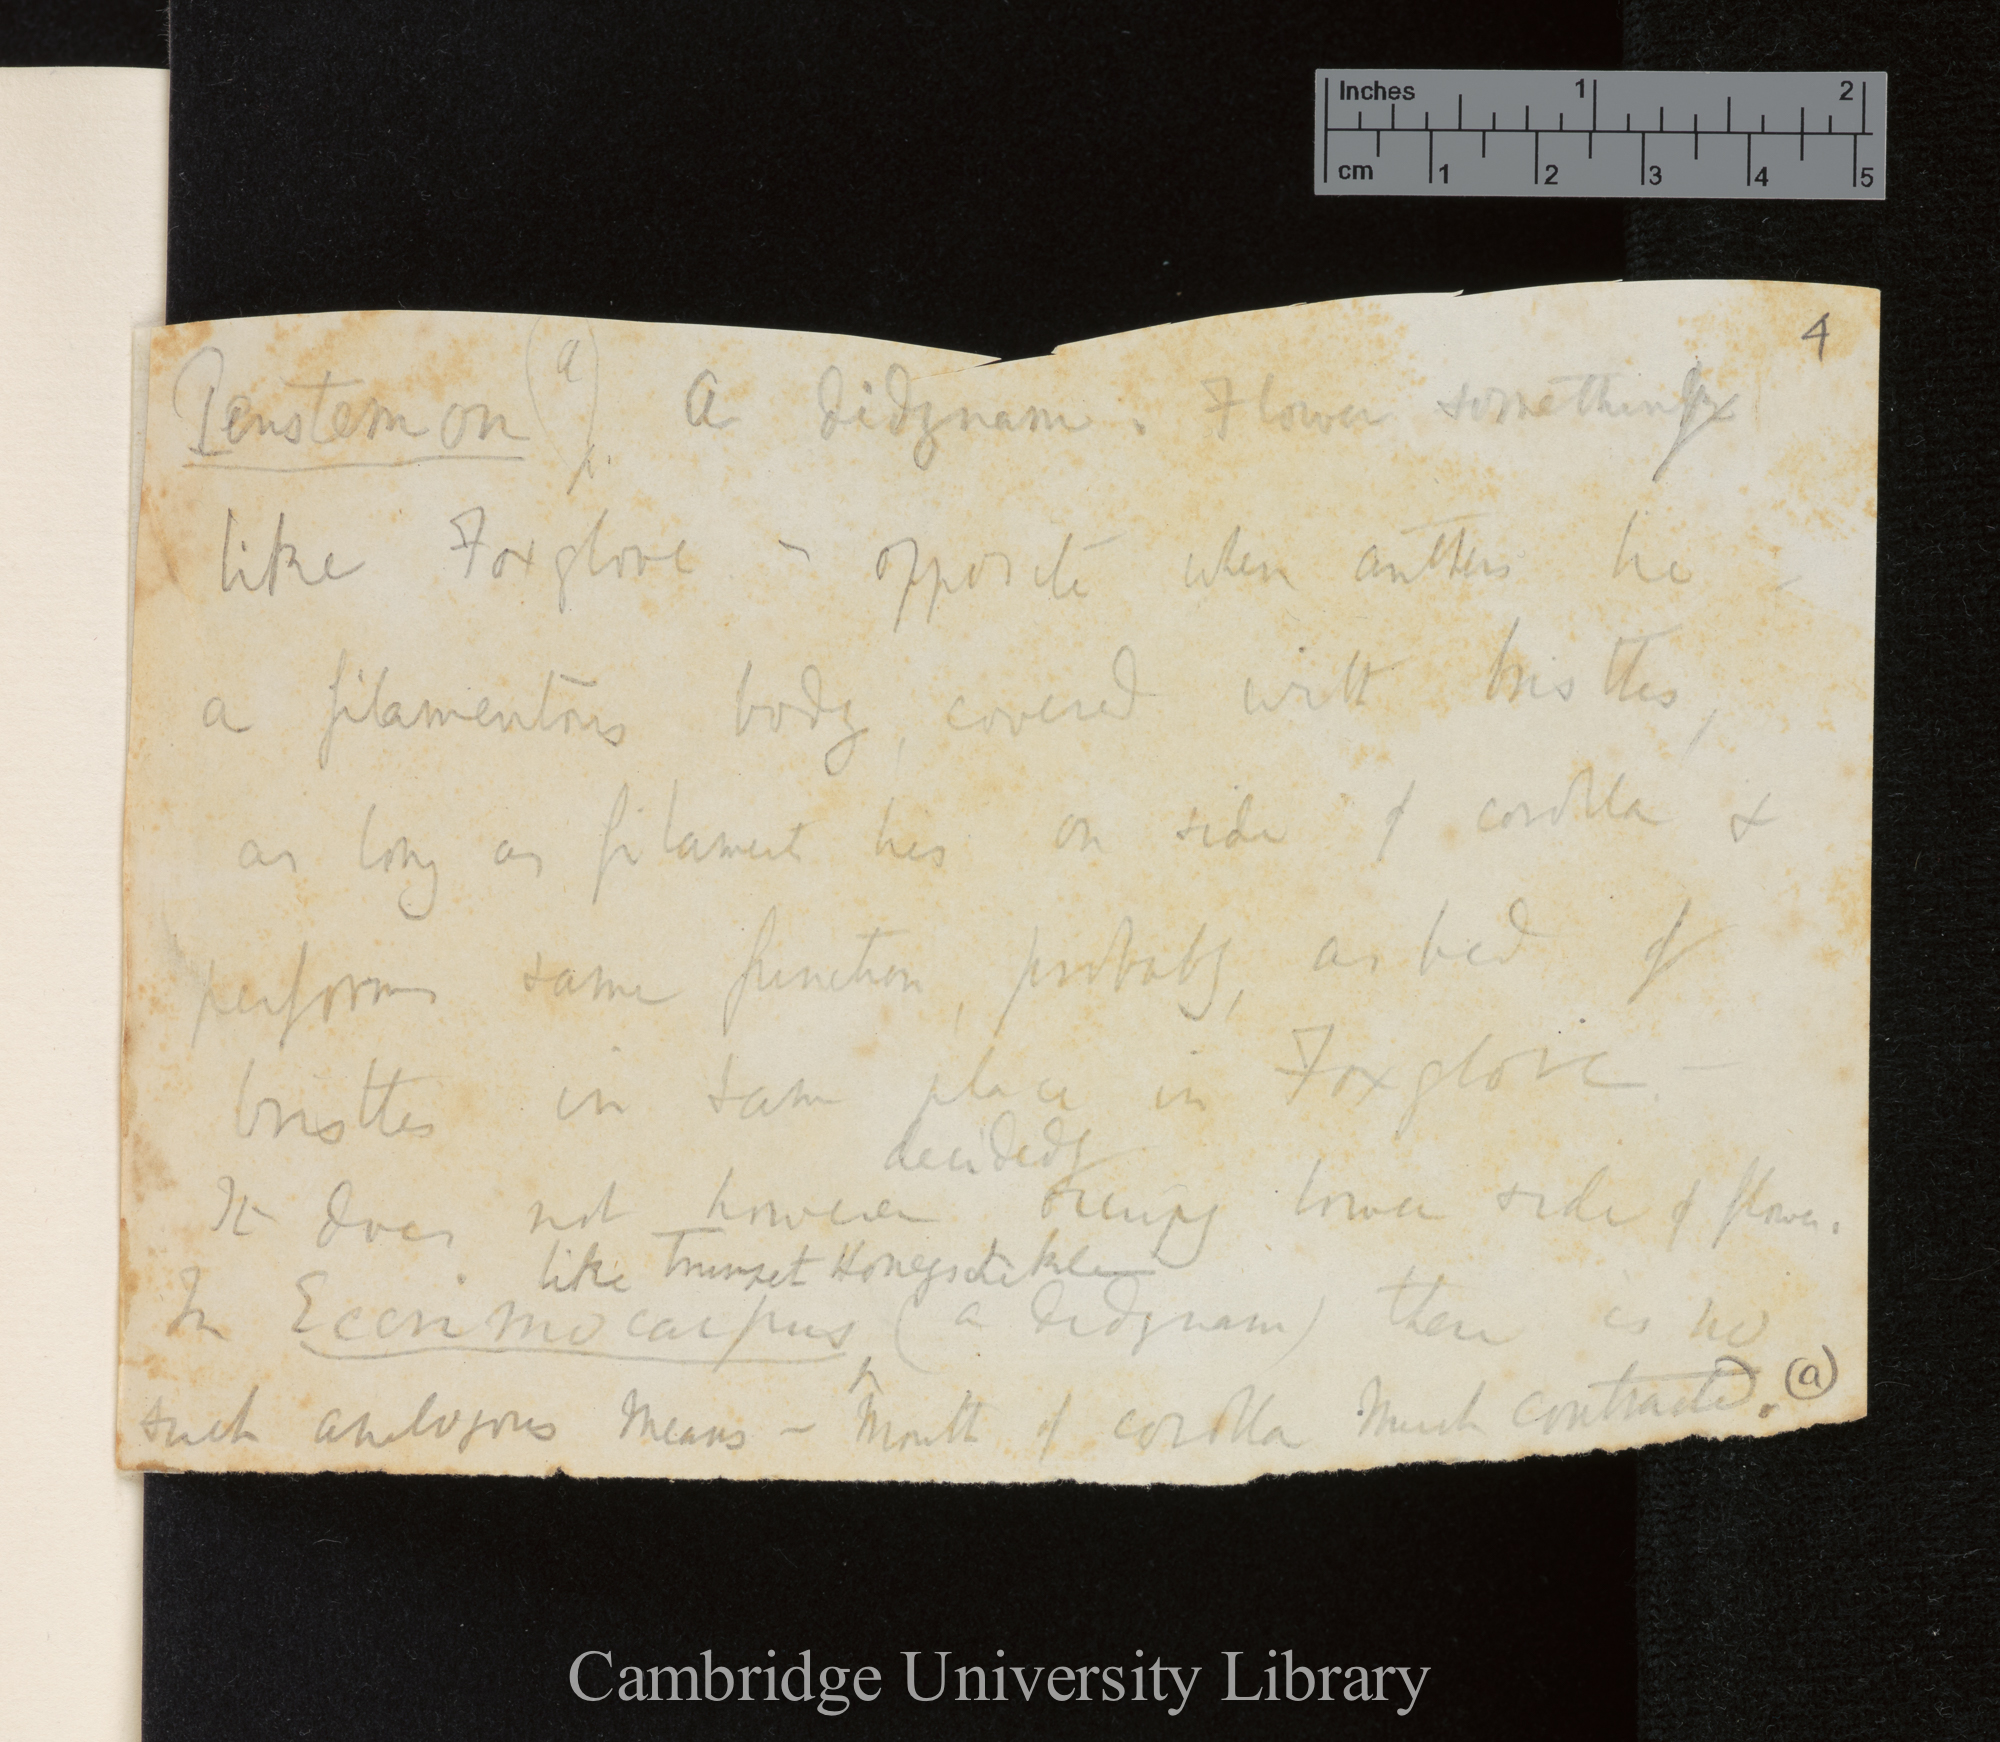 Inches 1 2
cm 1 2 3 4 5
4
Penstemon (a) A didynam. Flower something
like Foxglove – opposite when anthers lie –
a filamentous body, covered with bristles,
as long as filament lies on side of corolla &
performs same function, probably, as bed of
bristles in same place in Foxglove –
decidedly
It does not however occupy lower side of flower.
like Trumpet Honeysuckle
In Eccrimocarpus (a didynam) there is no
such analogous means – Mouth of corolla much contracted. (a)
Cambridge University Library